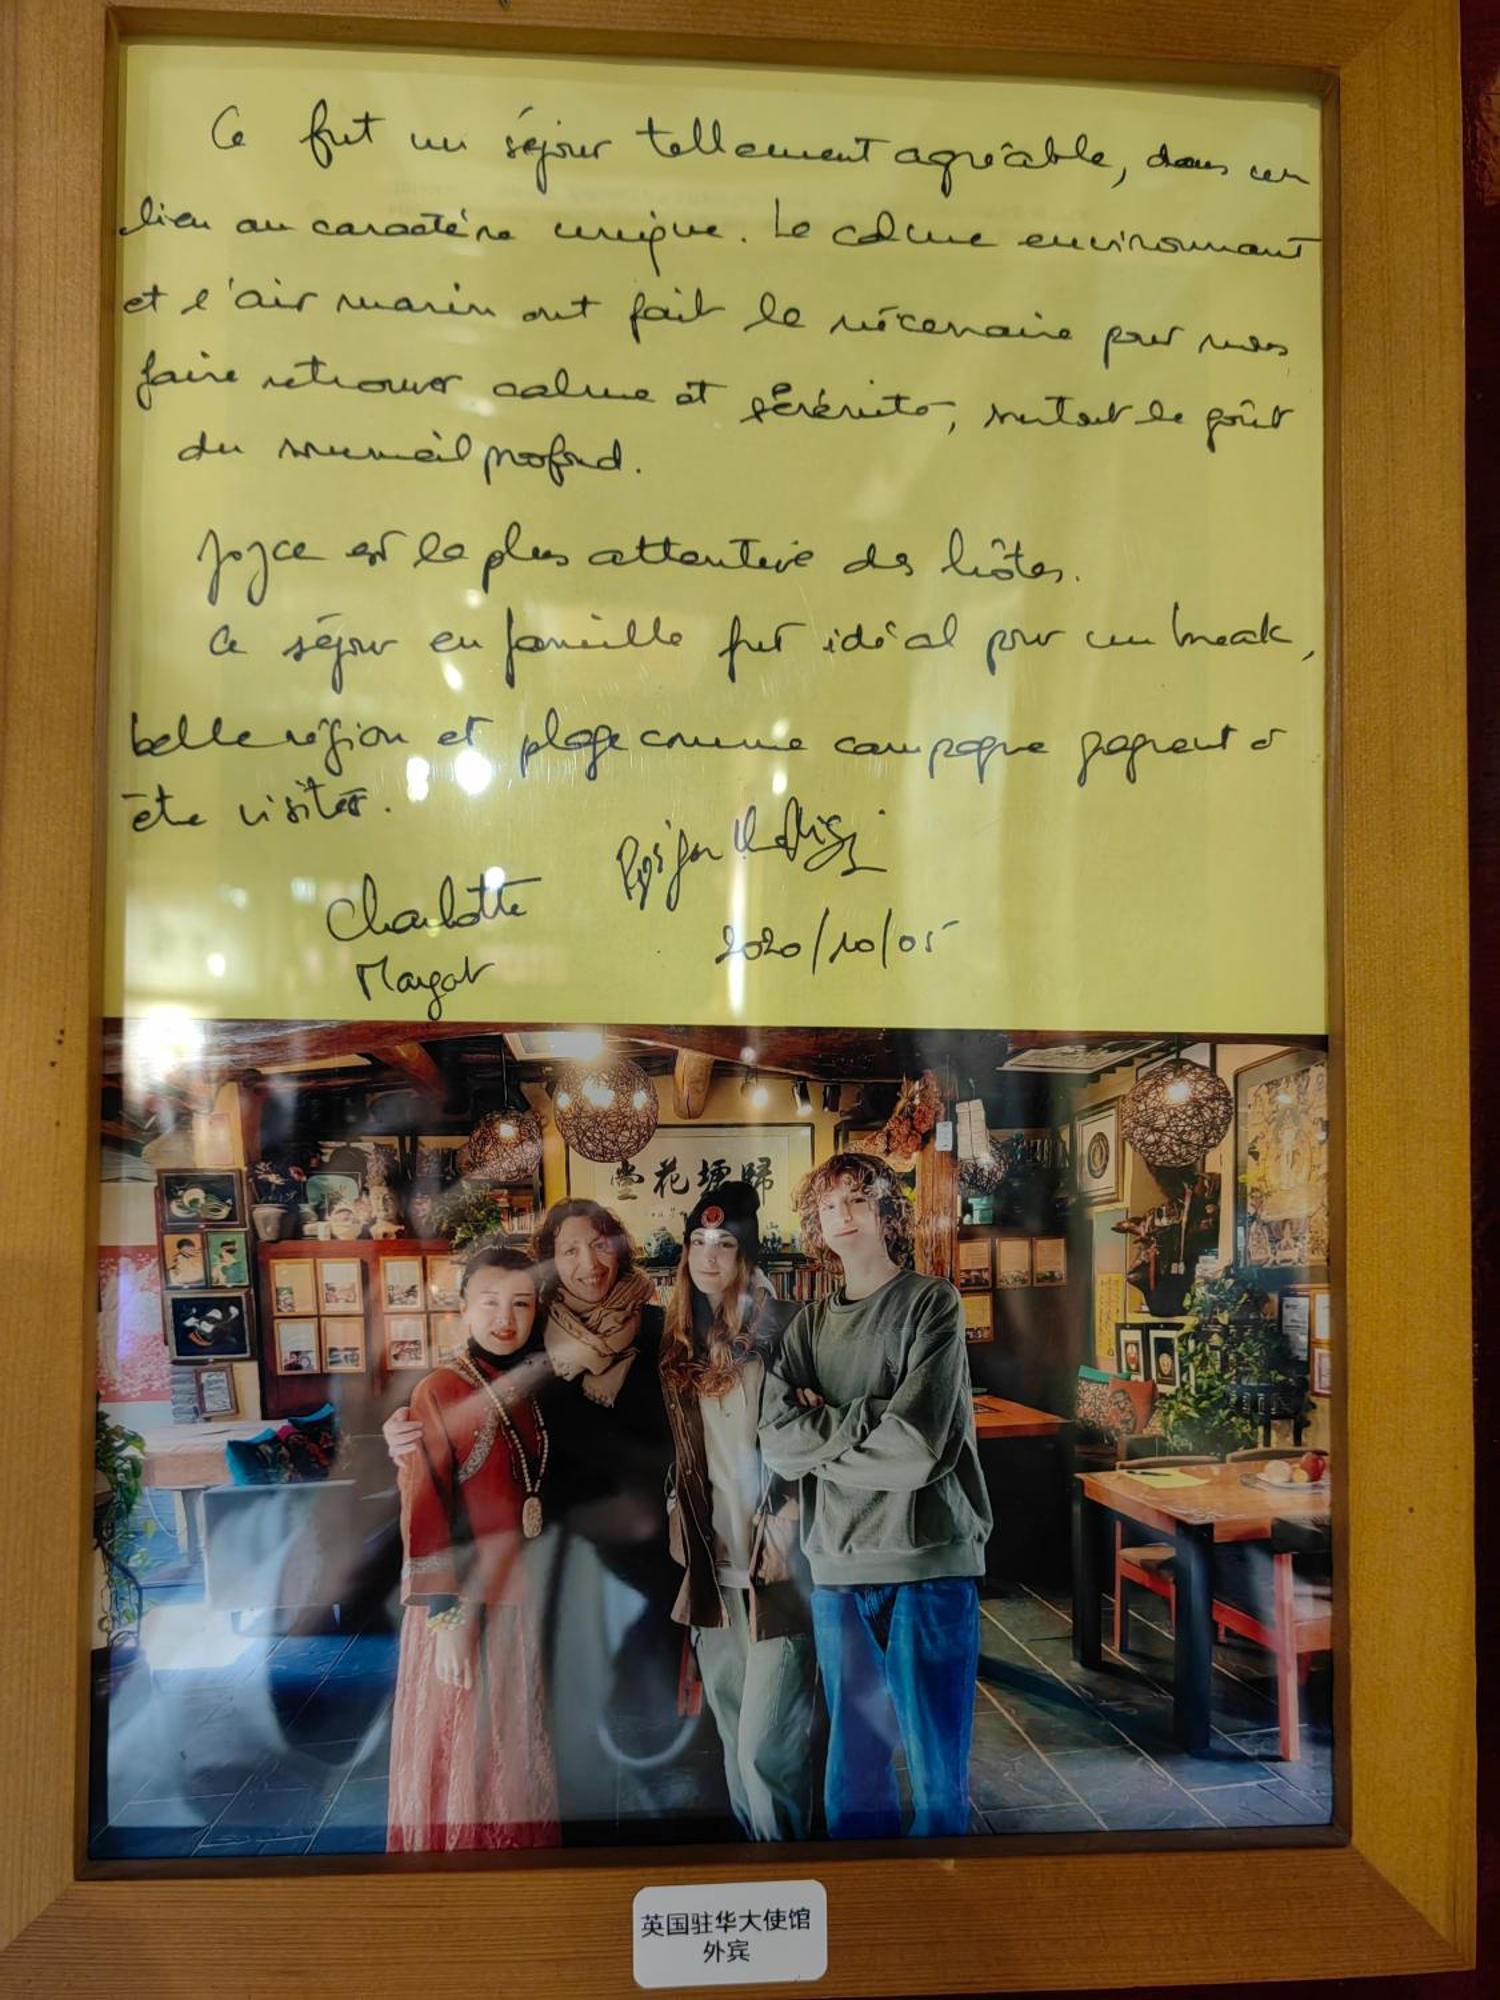 Ce fut un séjour tellement agréable, dans un
lieu au caractère unique. Le calme environnant
et l'air marin ont fait le nécessaire pour nous
faire retrouver calme et sérénité, surtout le goût
du sommeil profond.
Joyce est la plus attentive des hôtes.
Ce séjour en famille fut idéal pour un break,
belle région et plage comme campagne gagnent à
être visités.
Charlotte
Margot
2020/10/05
堂花塘歸
英国驻华大使馆
外宾